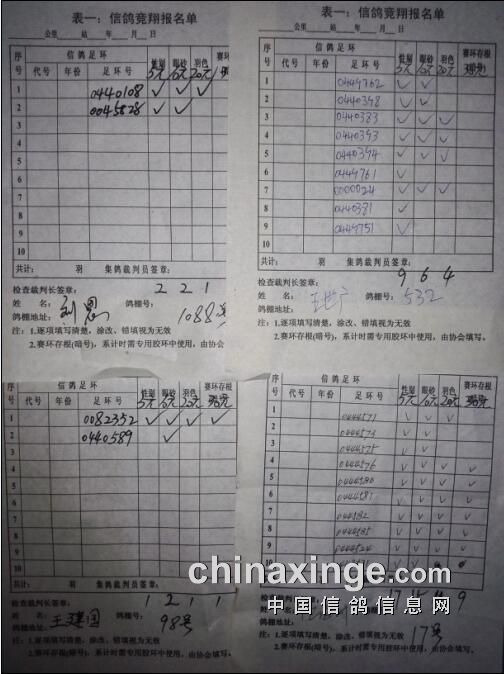 表一：信鸽竞翔报名单
公里 站 年 月 日
序号 信鸽足环 性别 眼砂 羽色 赛环存根
代号 年份 足环号 5元 10元 20元
1 0440108 ✓ ✓ ✓
2 0045828 ✓ ✓
3
4
5
6
7
8
9
10
共计： 羽 集鸽裁判员签章：
检查裁判长签章： 2 2 1
姓 名： 鸽棚号：
鸽棚地址： 1088号
注：1.逐项填写清楚，涂改、错填视为无效
2.赛环存根(暗号)，系计时需专用胶环中使用，由协会
表一：信鸽竞翔报名单
公里 站 年 月 日
序号 信鸽足环 性别 眼砂 羽色 赛环存根
代号 年份 足环号 5元 10元 20元
1 0449762 ✓ ✓
2 0440398 ✓ ✓
3 0440383 ✓ ✓ ✓
4 0440393 ✓ ✓ ✓
5 0440394 ✓ ✓ ✓
6 0449761 ✓
7 0000024 ✓ ✓ ✓
8 0440381 ✓
9 0449751 ✓
10
共计： 羽 集鸽裁判员签章：
检查裁判长签章： 9 6 4
姓 名： 鸽棚号： 532
鸽棚地址：
注：1.逐项填写清楚，涂改、错填视为无效
2.赛环存根(暗号)，系计时需专用胶环中使用，由协会填写。
序号 信鸽足环 性别 眼砂 羽色 赛环存根
代号 年份 足环号 5元 10元 20元
1 0082352 ✓ ✓ ✓ ✓
2 0440589 ✓
3
4
5
6
7
8
9
10
共计： 羽 集鸽裁判员签章：
检查裁判长签章： 1 2 1 1
姓 名： 王建国 鸽棚号：
鸽棚地址： 98号
注：1.逐项填写清楚，涂改、错填视为无效
2.赛环存根(暗号)，系计时需专用胶环中使用，由协会填写。
序号 信鸽足环 性别 眼砂 羽色 赛环存根
代号 年份 足环号 5元 10元 20元
1 0444571 ✓ ✓ ✓
2 0444573 ✓ ✓
3 0444575 ✓ ✓
4 0444576 ✓ ✓ ✓ ✓
5 0444580 ✓ ✓ ✓ ✓
6 0444581 ✓ ✓ ✓ ✓
7 ✓ ✓ ✓ ✓
8 ✓ ✓ ✓ ✓
9 0444524 ✓ ✓ ✓ ✓
10
检查裁判长签章： 9
姓 名：
鸽棚地址： 17号
注：1.逐项填写清楚，涂改、错填视为无效
2.赛环存根(暗号)，系计时需专用胶环中使用，由协会填写。
chinaxinge.com
中国信鸽信息网